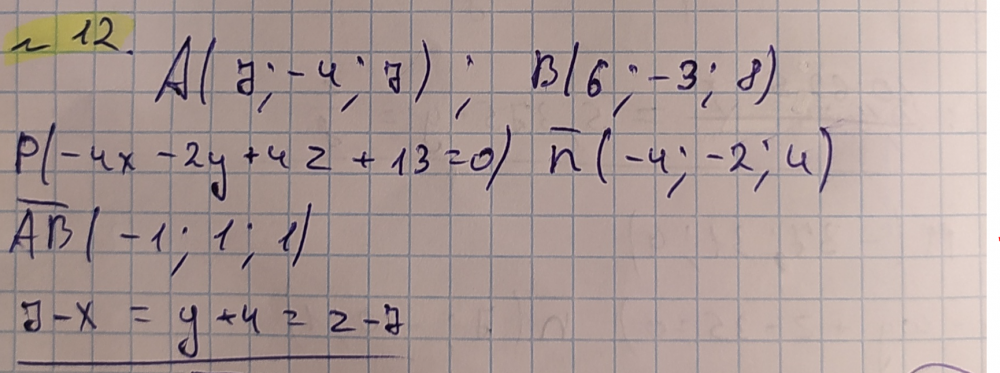 ~ 12.
A(7; -4; 7); B(6; -3; 8)
P(-4x - 2y + 4z + 13 = 0) n̅(-4; -2; 4)
A̅B̅(-1; 1; 1)
7 - x = y + 4 = z - 7